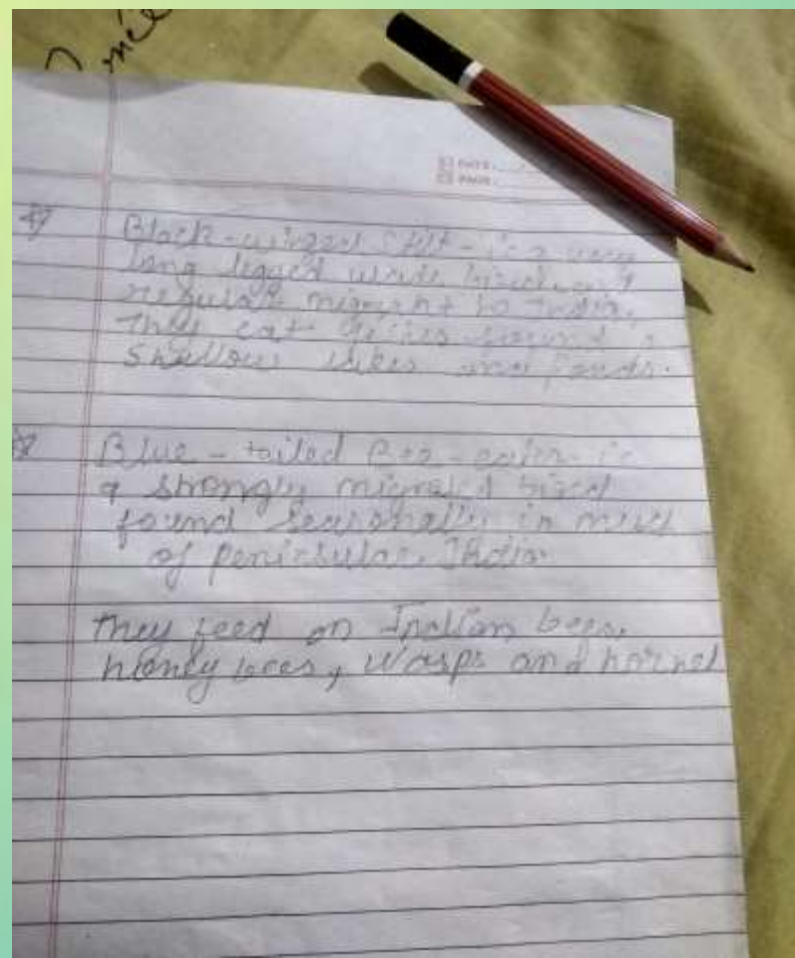 DATE.
PAGE.
Black-winged Stilt- is a very
long legged wade bird, and
regular migrant to India,
They eat found in
shallow lakes and Ponds.
Blue-tailed Bee-eater- is
a strongly migrated bird
found seasonally in much
of penicsular India
They feed on Indian bees,
honey bees, wasps and hornet